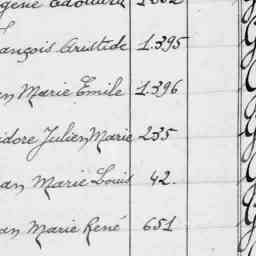 gène Edouard
ançois Aristide 1.395
an Marie Emile 1.396
idore Julien Marie 235
an Marie Louis 42.
an Marie René 651